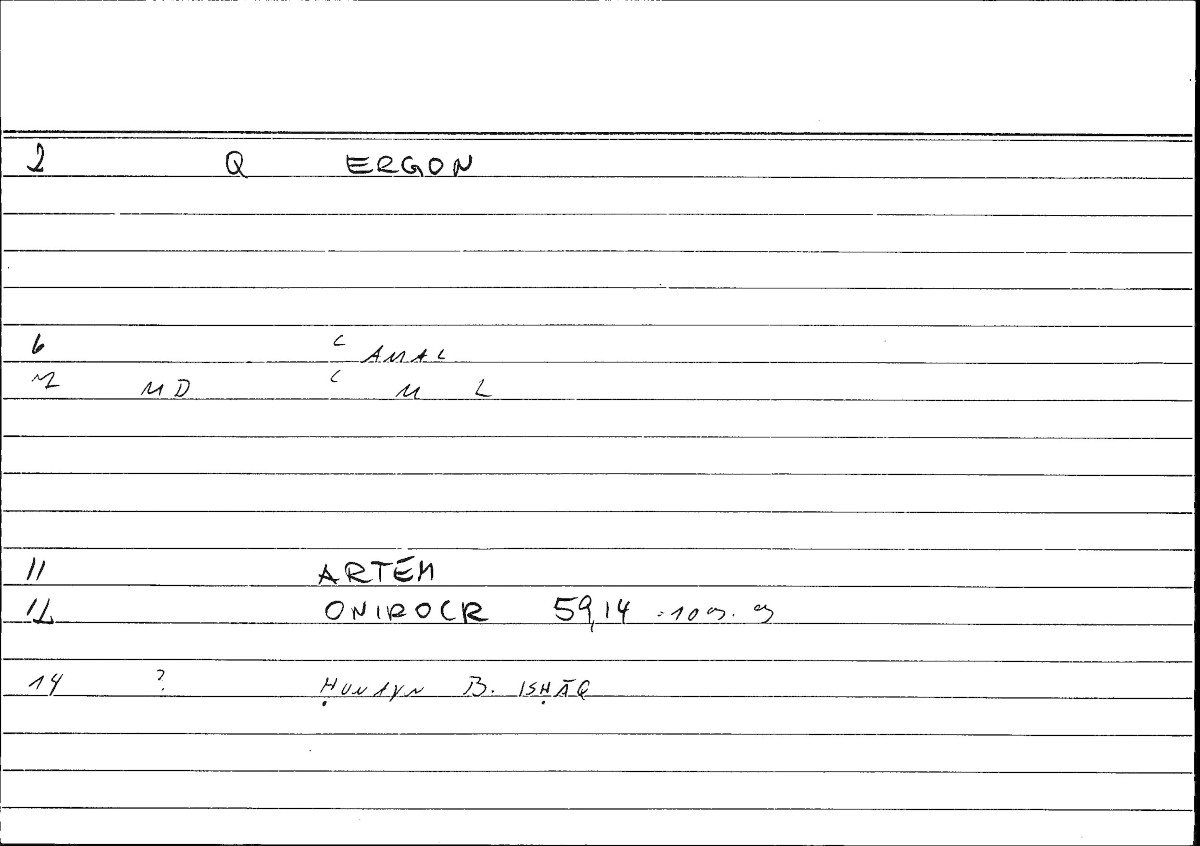 2 Q ERGON
6 ʿAMAL
7 MD ʿ M L
11 ARTEM
12 ONIROCR 59,14
14 ? ḤUNAYN B. ISḤĀQ